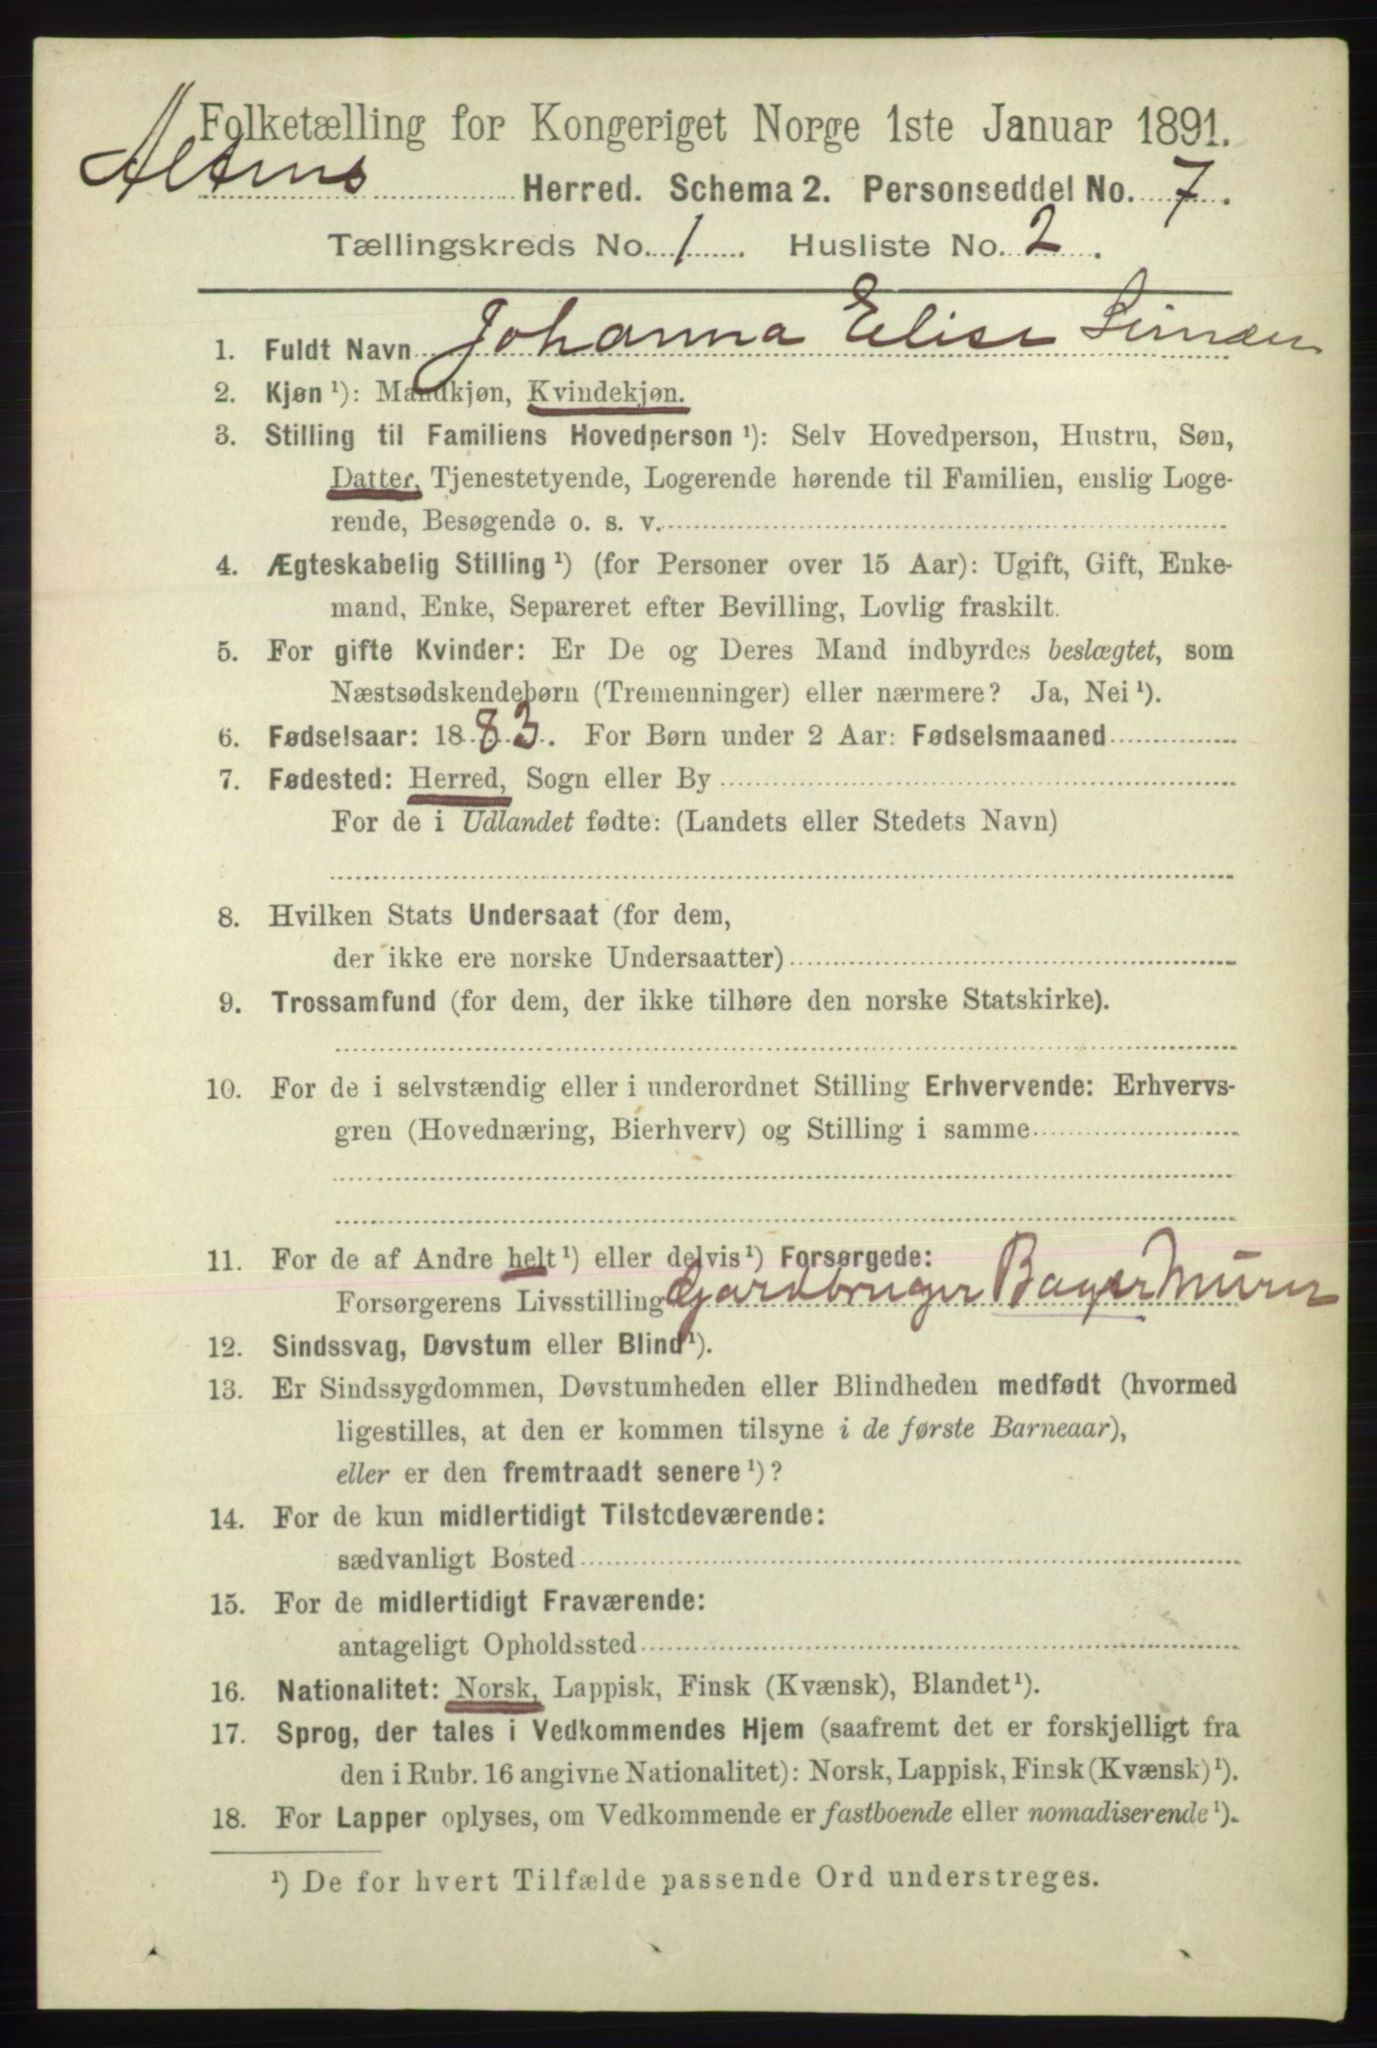 Folketælling for Kongeriget Norge 1ste Januar 1891.
Altens Herred. Schema 2. Personseddel No. 7.
Tællingskreds No. 1. Husliste No. 2.
1. Fuldt Navn Johanna Elise
2. Kjøn ¹): Mandkjøn, Kvindekjøn.
3. Stilling til Familiens Hovedperson ¹): Selv Hovedperson, Hustru, Søn,
Datter, Tjenestetyende, Logerende hørende til Familien, enslig Loge-
rende, Besøgende o. s. v.
4. Ægteskabelig Stilling ¹) (for Personer over 15 Aar): Ugift, Gift, Enke-
mand, Enke, Separeret efter Bevilling, Lovlig fraskilt.
5. For gifte Kvinder: Er De og Deres Mand indbyrdes beslægtet, som
Næstsødskendebørn (Tremenninger) eller nærmere? Ja, Nei ¹).
6. Fødselsaar: 1883. For Børn under 2 Aar: Fødselsmaaned
7. Fødested: Herred, Sogn eller By
For de i Udlandet fødte: (Landets eller Stedets Navn)
8. Hvilken Stats Undersaat (for dem,
der ikke ere norske Undersaatter)
9. Trossamfund (for dem, der ikke tilhøre den norske Statskirke).
10. For de i selvstændig eller i underordnet Stilling Erhvervende: Erhvervs-
gren (Hovednæring, Bierhverv) og Stilling i samme
11. For de af Andre helt ¹) eller delvis ¹) Forsørgede:
Forsørgerens Livsstilling Gardbruger Murer
12. Sindssvag, Døvstum eller Blind ¹).
13. Er Sindssygdommen, Døvstumheden eller Blindheden medfødt (hvormed
ligestilles, at den er kommen tilsyne i de første Barneaar),
eller er den fremtraadt senere ¹)?
14. For de kun midlertidigt Tilstedeværende:
sædvanligt Bosted
15. For de midlertidigt Fraværende:
antageligt Opholdssted
16. Nationalitet: Norsk, Lappisk, Finsk (Kvænsk), Blandet ¹).
17. Sprog, der tales i Vedkommendes Hjem (saafremt det er forskjelligt fra
den i Rubr. 16 angivne Nationalitet): Norsk, Lappisk, Finsk (Kvænsk) ¹).
18. For Lapper oplyses, om Vedkommende er fastboende eller nomadiserende ¹).
¹) De for hvert Tilfælde passende Ord understreges.